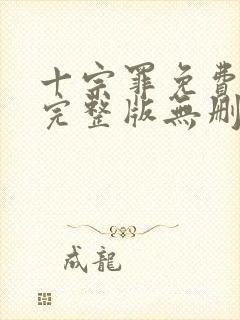 十宗罪免費
完整版無刪
成龍